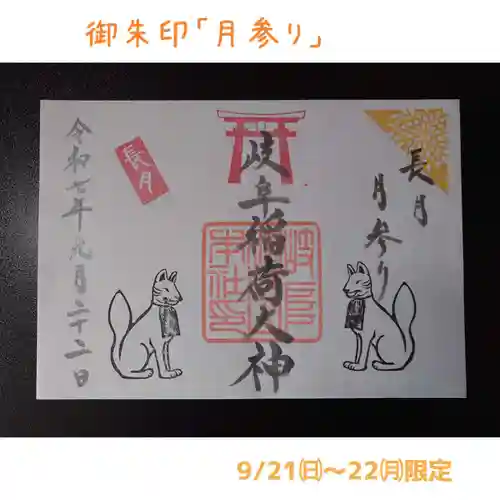 御朱印「月参り」
長月
月参り
岐阜稲荷大神
長月
令和七年九月二十二日
9/21㈰〜22㈪限定